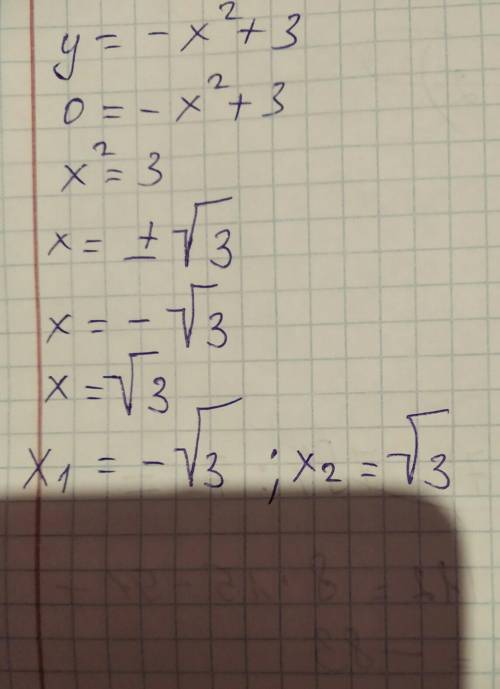 y = -x² + 3
0 = -x² + 3
x² = 3
x = ±√3
x = -√3
x = √3
x₁ = -√3 ; x₂ = √3